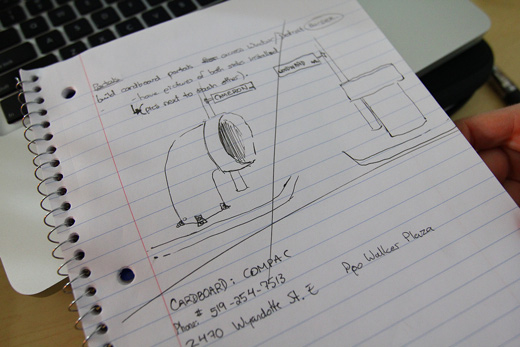 Portals
build cardboard portals across Windsor/Detroit
- have pictures of both sides installed
(pics next to each other).
CAMERON
CARDBOARD: COMPAC
Phone: # 519-254-7513
2470 Wyandotte St. E
Ppo Walker Plaza